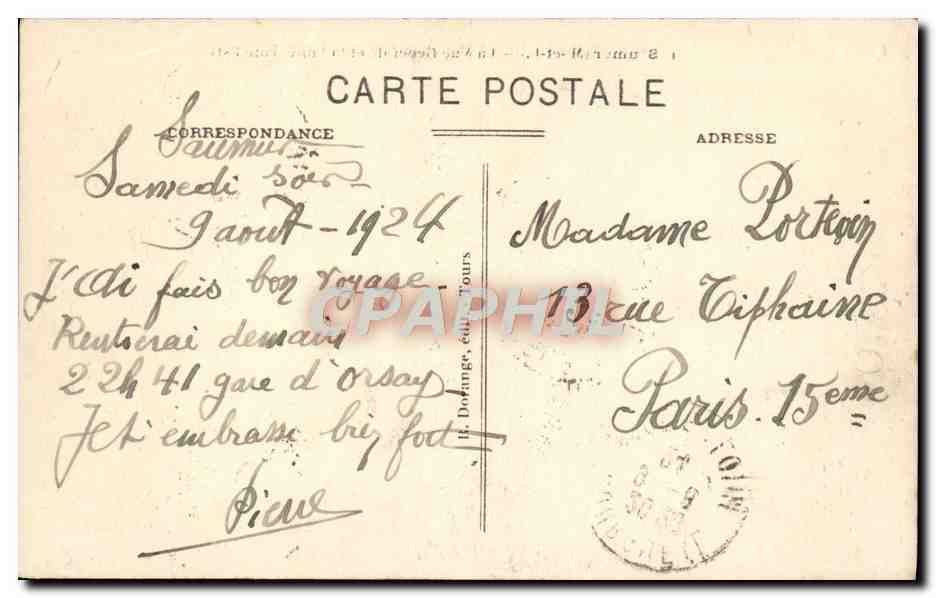 CARTE POSTALE
CORRESPONDANCE
ADRESSE
Saumur
Samedi soir
9 aout - 1924
J'ai fais bon voyage
Rentrerai demain
22h41 gare d'Orsay
Je t'embrasse bien fort
Pierre
R. Dorange, édit., Tours
Madame Portevin
13 rue Tiphaine
Paris. 15eme
CPAPHIL